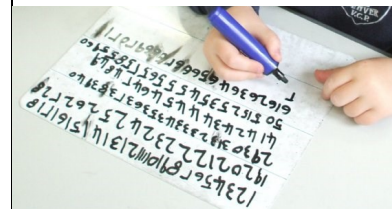 1 2 3 4 5 6 7 8 9 10 11 12 13 14 15 16 17 18
19 20 21 22 23 24 25 26 27 28
29 30 31 32 33 34 35 36 37 38 39 40
41 42 43 44 45 46 47 48 49
50 51 52 53 54 55 56 57 58 59 60
61 62 63 64 65 66 67